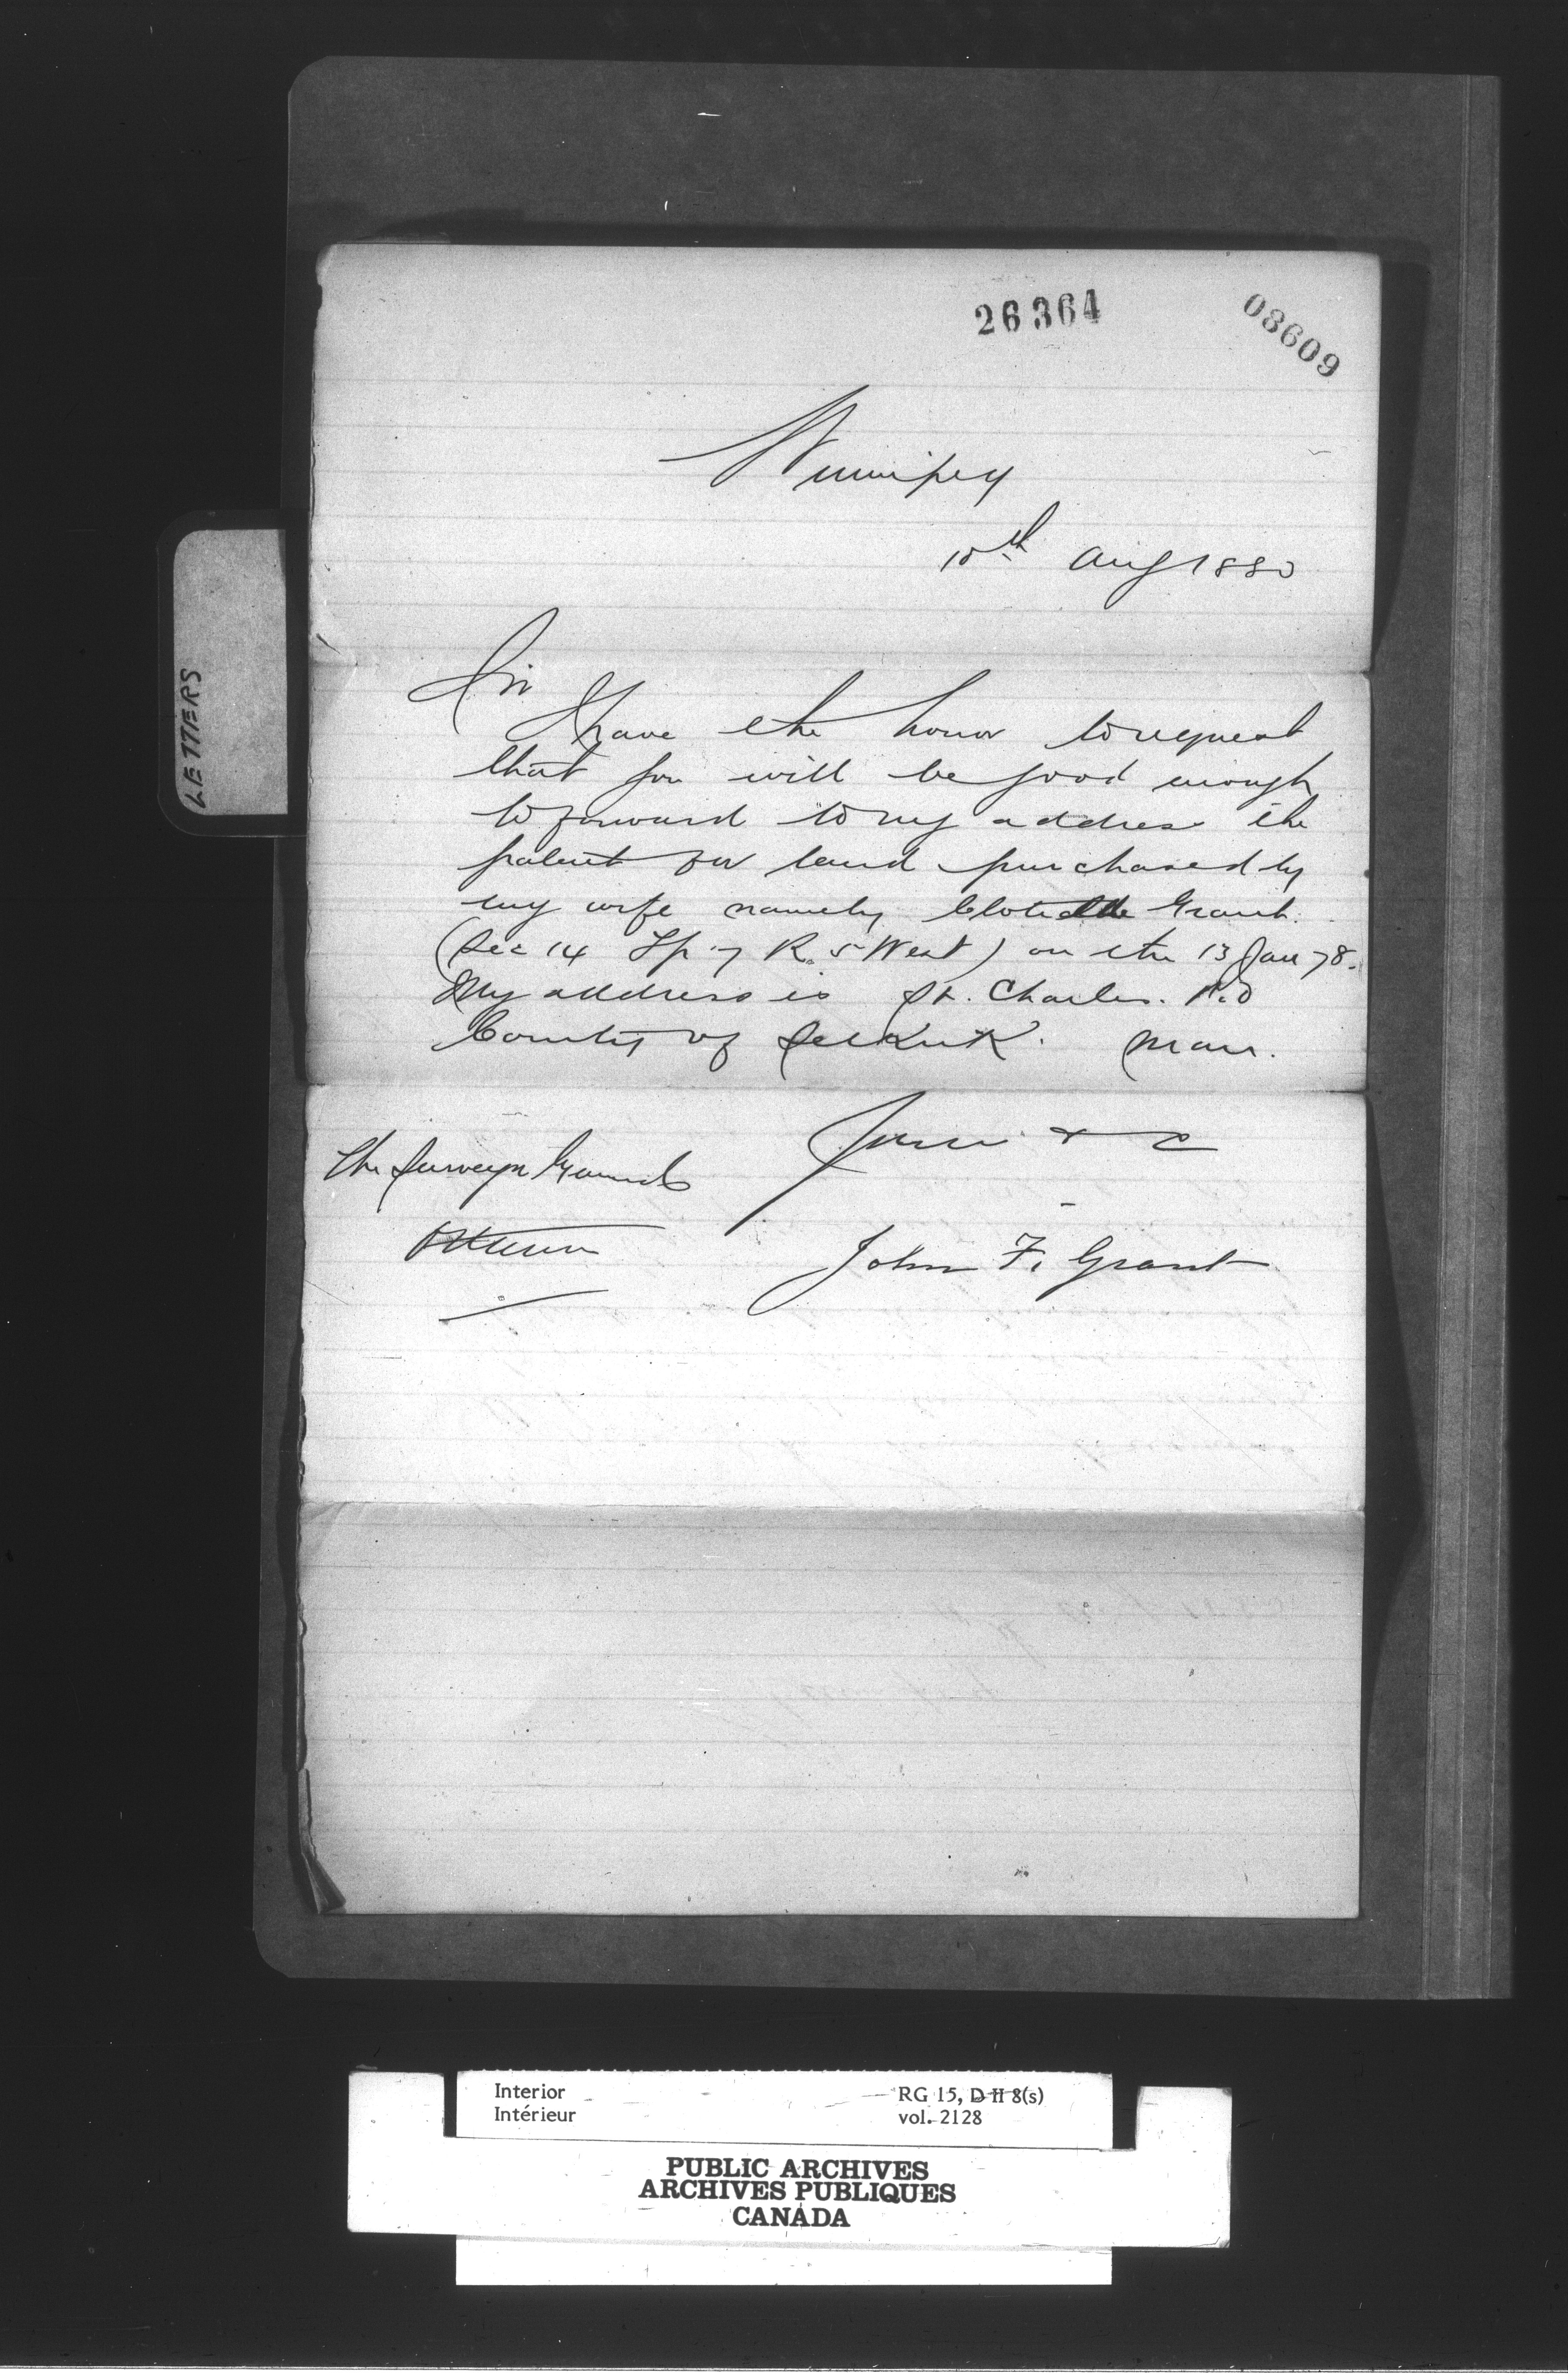 26364
08609
Winnipeg
10th Aug 1880
Sir
I have the honor to request
that you will be good enough
to forward to my address the
patent for land purchased by
my wife namely Clotilde Grant.
(Sec 14 Tp 7 R. 5 West) on the 13 Jan 78.
My address is St. Charles. P.O
County of Selkirk. Man.
Yours &c
The Surveyor General
Ottawa
John F. Grant
LETTERS
Interior
Intérieur
RG 15, D II 8(s)
vol. 2128
PUBLIC ARCHIVES
ARCHIVES PUBLIQUES
CANADA